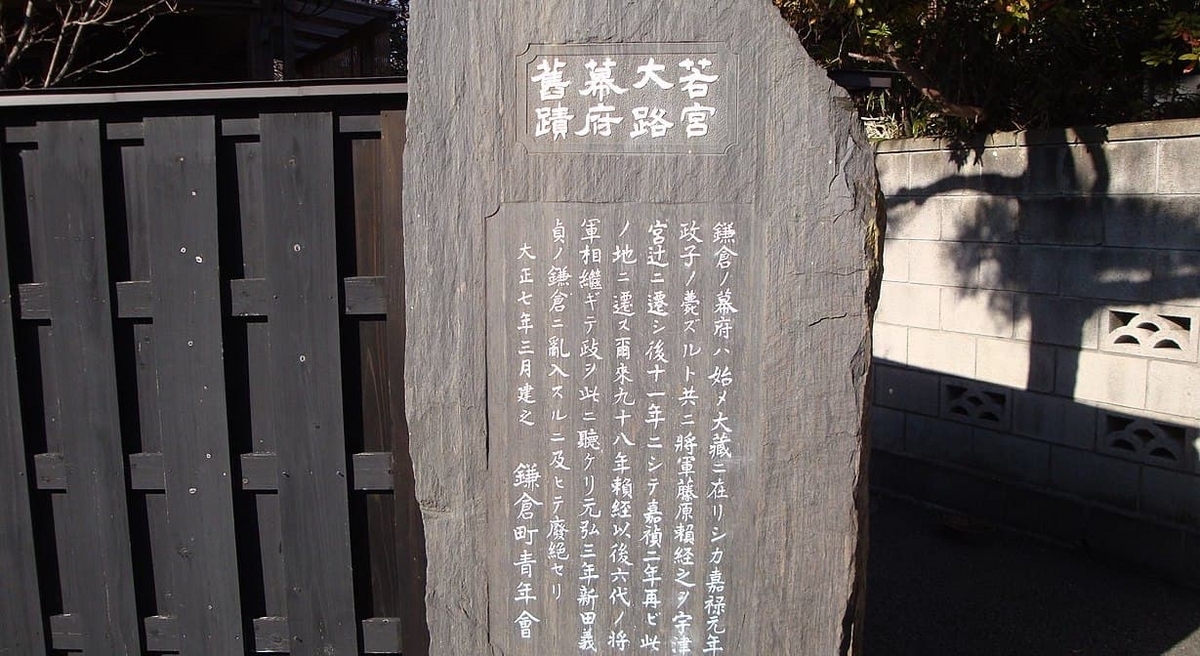 若宮
大路
幕府
舊蹟
鎌倉ノ幕府ハ始メ大藏ニ在リシカ嘉禄元年
政子ノ薨ズルト共ニ將軍藤原賴経之ヲ宇津
宮辻ニ遷シ後十一年ニシテ嘉禎二年再ビ此
ノ地ニ遷ス爾來九十八年賴経以後六代ノ將
軍相繼ギテ政ヲ此ニ聽ケリ元弘三年新田義
貞ノ鎌倉ニ亂入スルニ及ヒテ廢絶セリ
大正七年三月建之 鎌倉町青年會